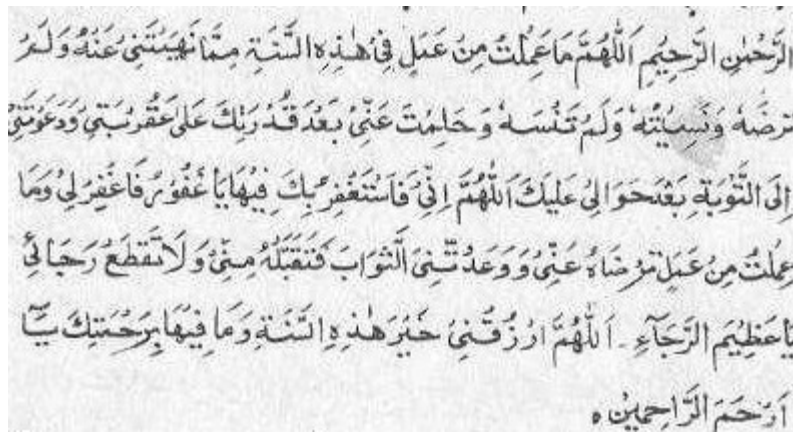 الرَّحْمٰنِ الرَّحِيْمِ اَللّٰهُمَّ مَا عَمِلْتُ مِنْ عَمَلٍ فِيْ هٰذِهِ السَّنَةِ مِمَّا نَهَيْتَنِيْ عَنْهُ وَلَمْ
تَرْضَهٗ وَنَسِيْتُهٗ وَلَمْ تَنْسَهٗ وَحَلِمْتَ عَنِّيْ بَعْدَ قُدْرَتِكَ عَلٰى عُقُوْبَتِيْ وَدَعَوْتَنِيْ
اِلَى التَّوْبَةِ بَعْدَ اَلِيْ عَلَيْكَ اَللّٰهُمَّ اِنِّيْ فَاسْتَغْفِرُ بِكَ فِيْهَا يَا غَفُوْرُ فَاغْفِرْ لِيْ وَمَا
عَمِلْتُ مِنْ عَمَلٍ تَرْضَاهُ عَنِّيْ وَوَعَدْتَّنِيَ الثَّوَابَ فَتَقَبَّلْهُ مِنِّيْ وَلَا تَقْطَعْ رَجَائِيْ
يَا عَظِيْمَ الرَّجَآءِ ۔ اَللّٰهُمَّ ارْزُقْنِيْ خَيْرَ هٰذِهِ السَّنَةِ وَمَا فِيْهَا بِرَحْمَتِكَ يَآ
اَرْحَمَ الرَّاحِمِيْنَ ہ